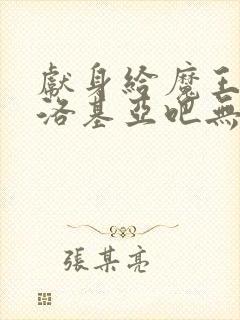 獻身給魔王
洛基亞吧無
張某亮